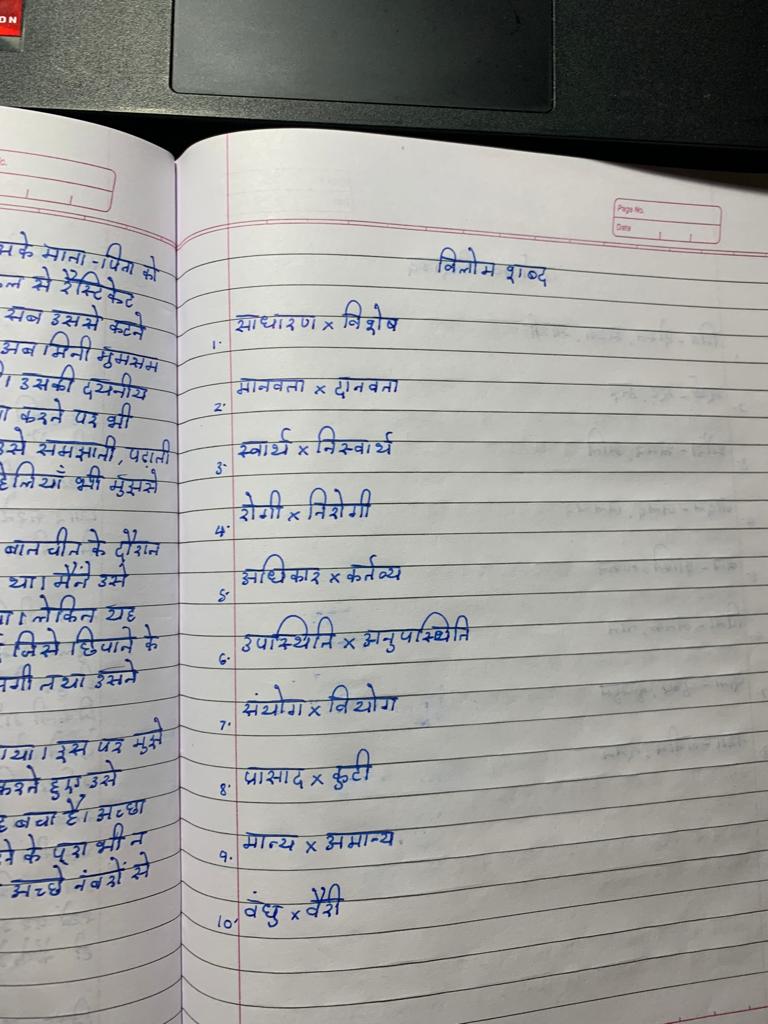 ON
के माता-पिता को
से रैस्टिकेट
सब उससे कटने
अब मिनी गुमसम
। उसकी दयनीय
करने पर भी
उसे समझाती, पढ़ाती
भी मुझसे
बात चीत के दौरान
था। मैंने उसे
। लेकिन यह
जिसे छिपाने के
तथा उसने
गया। इस पर मुझे
करते हुए उसे
बचा है। अच्छा
के पूरा भी न
अच्छे नंबरों से
Page No.
Date
विलोम शब्द
1. साधारण x विशेष
2. मानवता x दानवता
3. स्वार्थ x निस्वार्थ
4. रोगी x निरोगी
5. अधिकार x कर्तव्य
6. उपस्थिति x अनुपस्थिति
7. संयोग x वियोग
8. प्रासाद x कुटी
9. मान्य x अमान्य
10. वंधु x वैरी